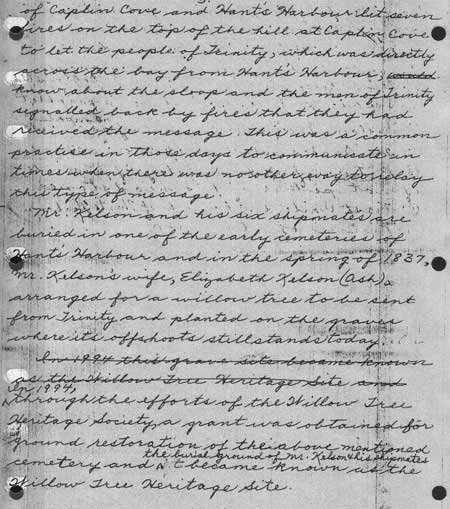 of Caplin Cove and Hant's Harbour lit seven
fires on the top of the hill at Caplin Cove
to let the people of Trinity, which was directly
across the bay from Hant's Harbour, would
know about the sloop and the men of Trinity
signalled back by fires that they had
received the message. This was a common
practise in those days to communicate in
times when there was no other way to relay
this type of message.
Mr. Kelson and his six shipmates are
buried in one of the early cemeteries of
Hant's Harbour and in the spring of 1837,
Mr. Kelson's wife, Elizabeth Kelson (Ash),
arranged for a willow tree to be sent
from Trinity and planted on the graves
where its offshoots still stands today.
In 1994 this grave site became known
as the Willow Tree Heritage Site and
In 1994,
through the efforts of the Willow Tree
Heritage Society, a grant was obtained for
ground restoration of the above mentioned
the burial ground of Mr. Kelson & his shipmates
cemetery and it became known as the
Willow Tree Heritage Site.